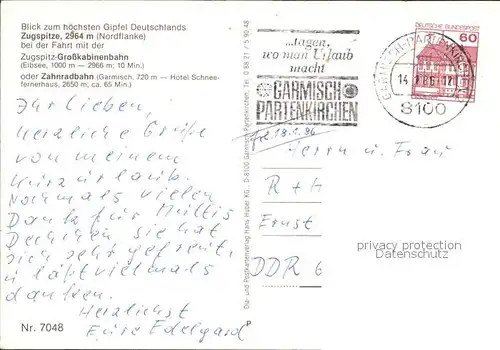 Blick zum höchsten Gipfel Deutschlands
Zugspitze, 2964 m (Nordflanke)
bei der Fahrt mit der
Zugspitz-Großkabinenbahn
(Eibsee, 1000 m — 2966 m; 10 Min.)
oder Zahnradbahn (Garmisch, 720 m — Hotel Schnee-
fernerhaus, 2650 m; ca. 65 Min.)
Ihr Lieben,
Herzliche Grüße
von meinem
Kurzurlaub.
Nochmals vielen
Dank für Muttis
Deckchen sie hat
sich sehr gefreut,
u. läßt vielmals
danken.
Herzlichst
Eure Edelgard
Nr. 7048
Dia- und Postkartenverlag Hans Huber KG · D-8100 Garmisch-Partenkirchen, Tel. 0 88 21 / 5 90 48
...tagen,
wo man Urlaub
macht
GARMISCH
PARTENKIRCHEN
GARMISCH-PARTENKIRCHEN
8100
DEUTSCHE BUNDESPOST
60
18.1.86
Herrn u. Frau
R + H
Ernst
DDR 6
privacy protection
Datenschutz